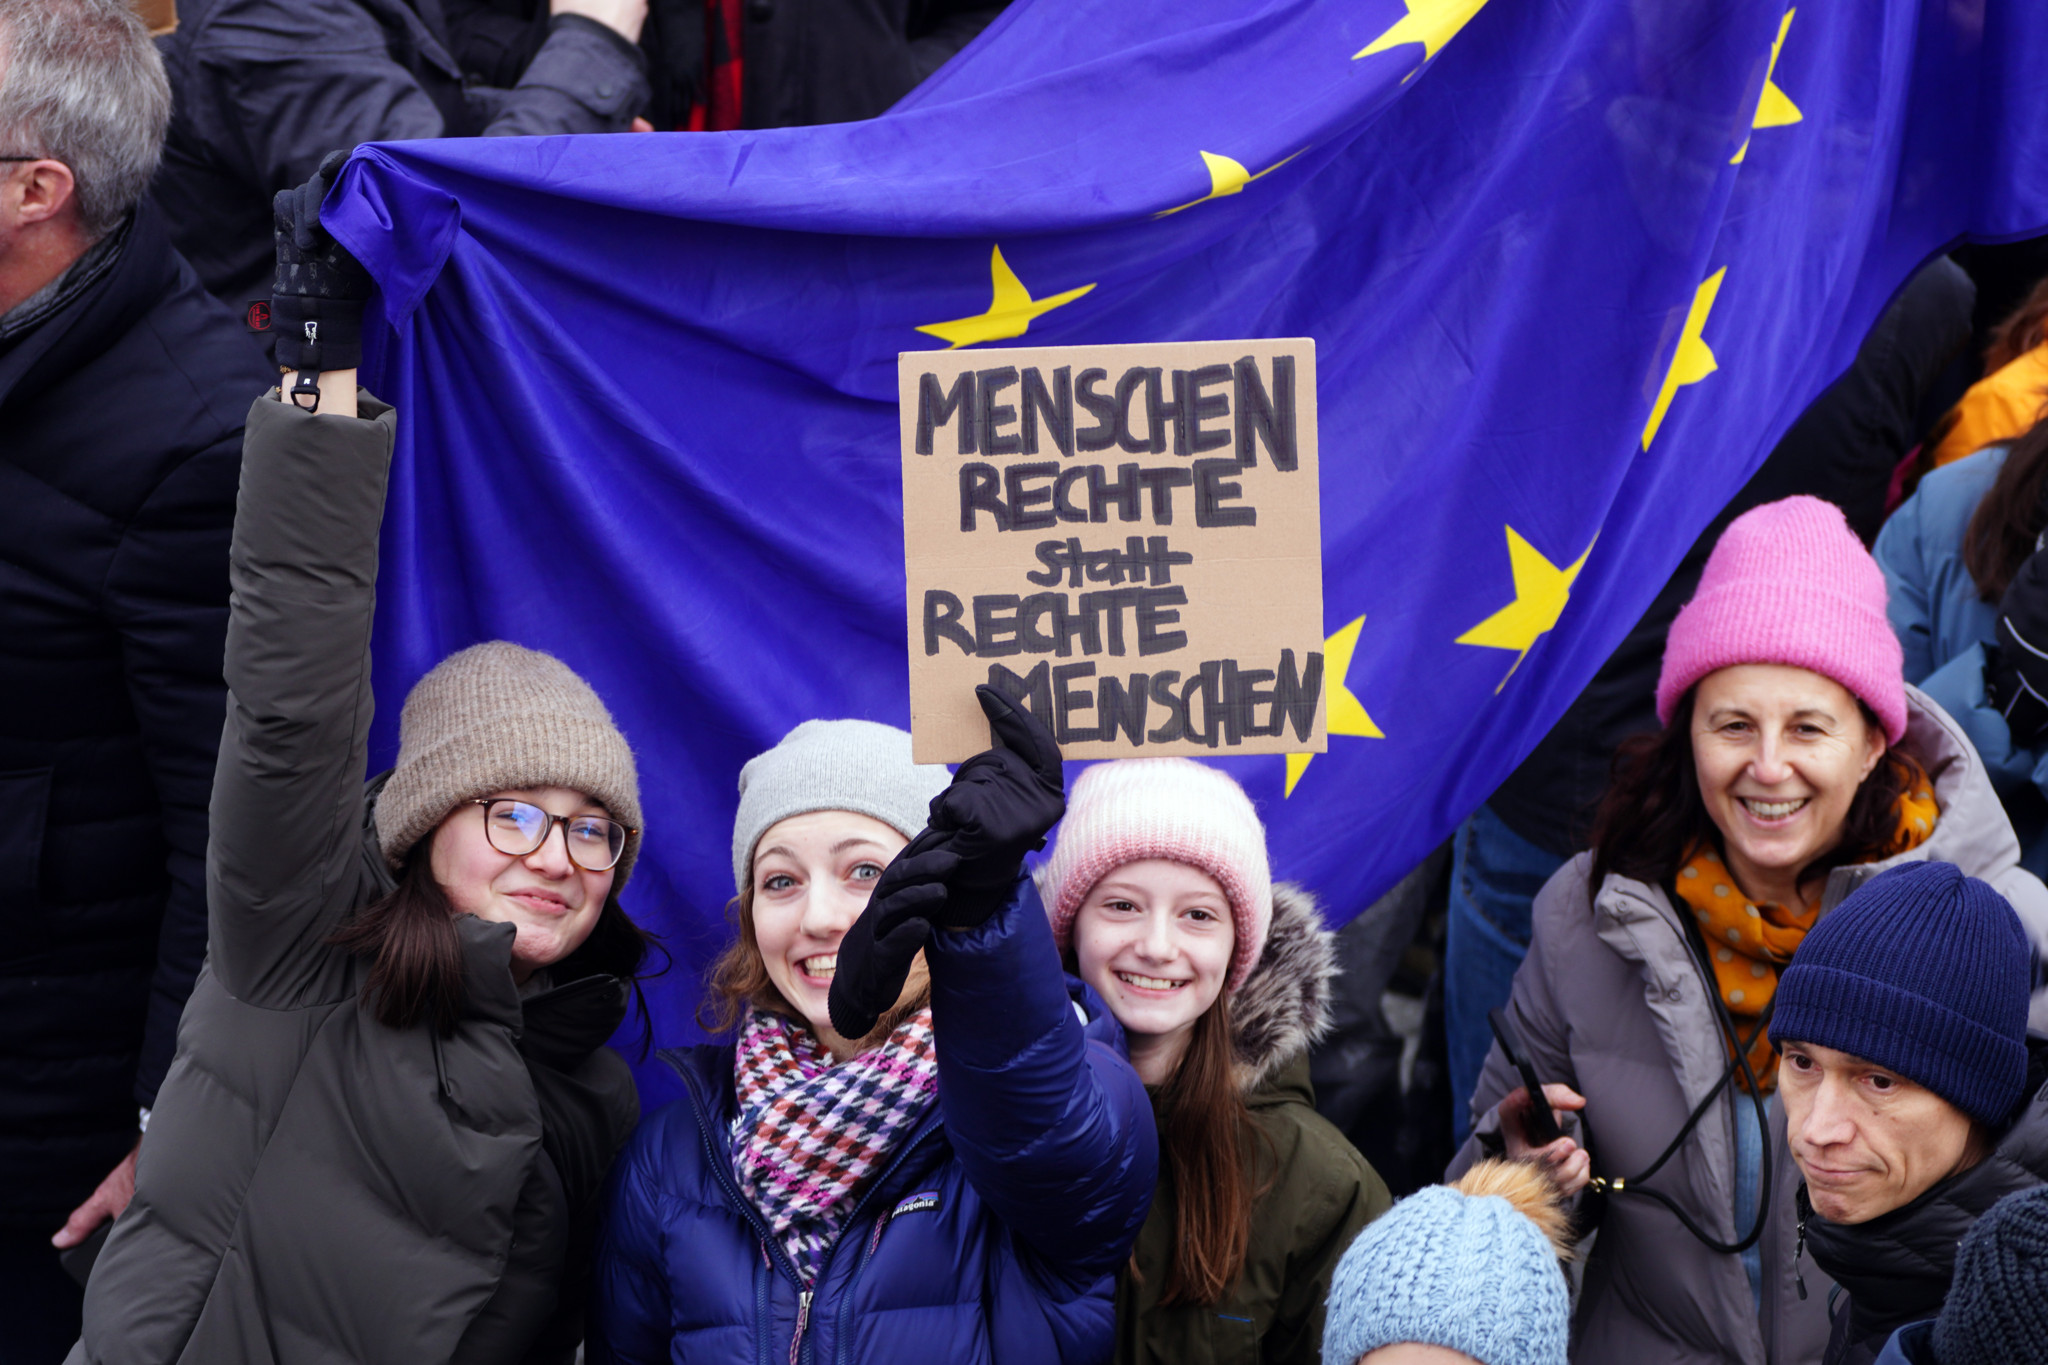 MENSCHEN
RECHTE
statt
RECHTE
MENSCHEN
patagonia